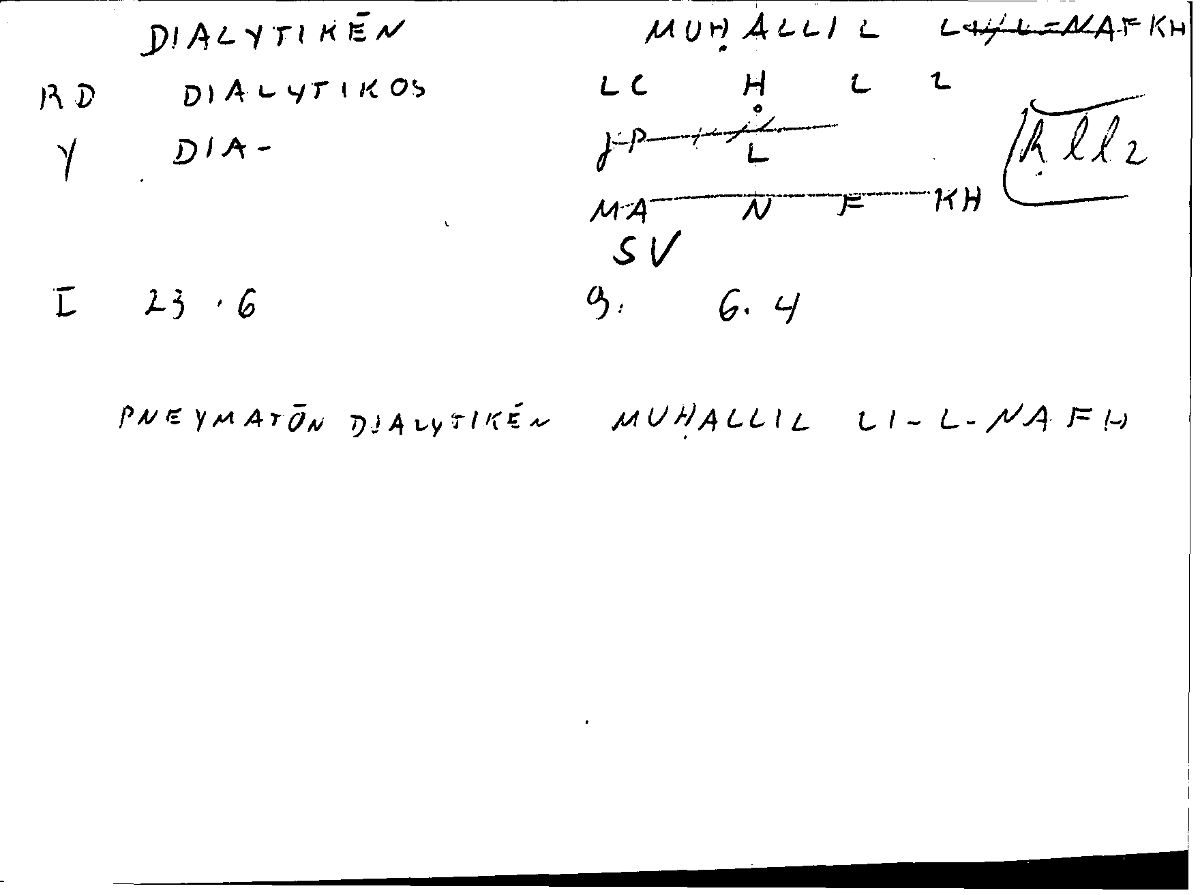 DIALYTIKĒN MUḤALLIL LI-L-NAFKH
RD DIALYTIKOS LC Ḥ L L
Y DIA- JP L ḥll2
MA N F KH
SV
I 23.6 9. 6.4
PNEYMATŌN DIALYTIKĒN MUḤALLIL LI-L-NAFH